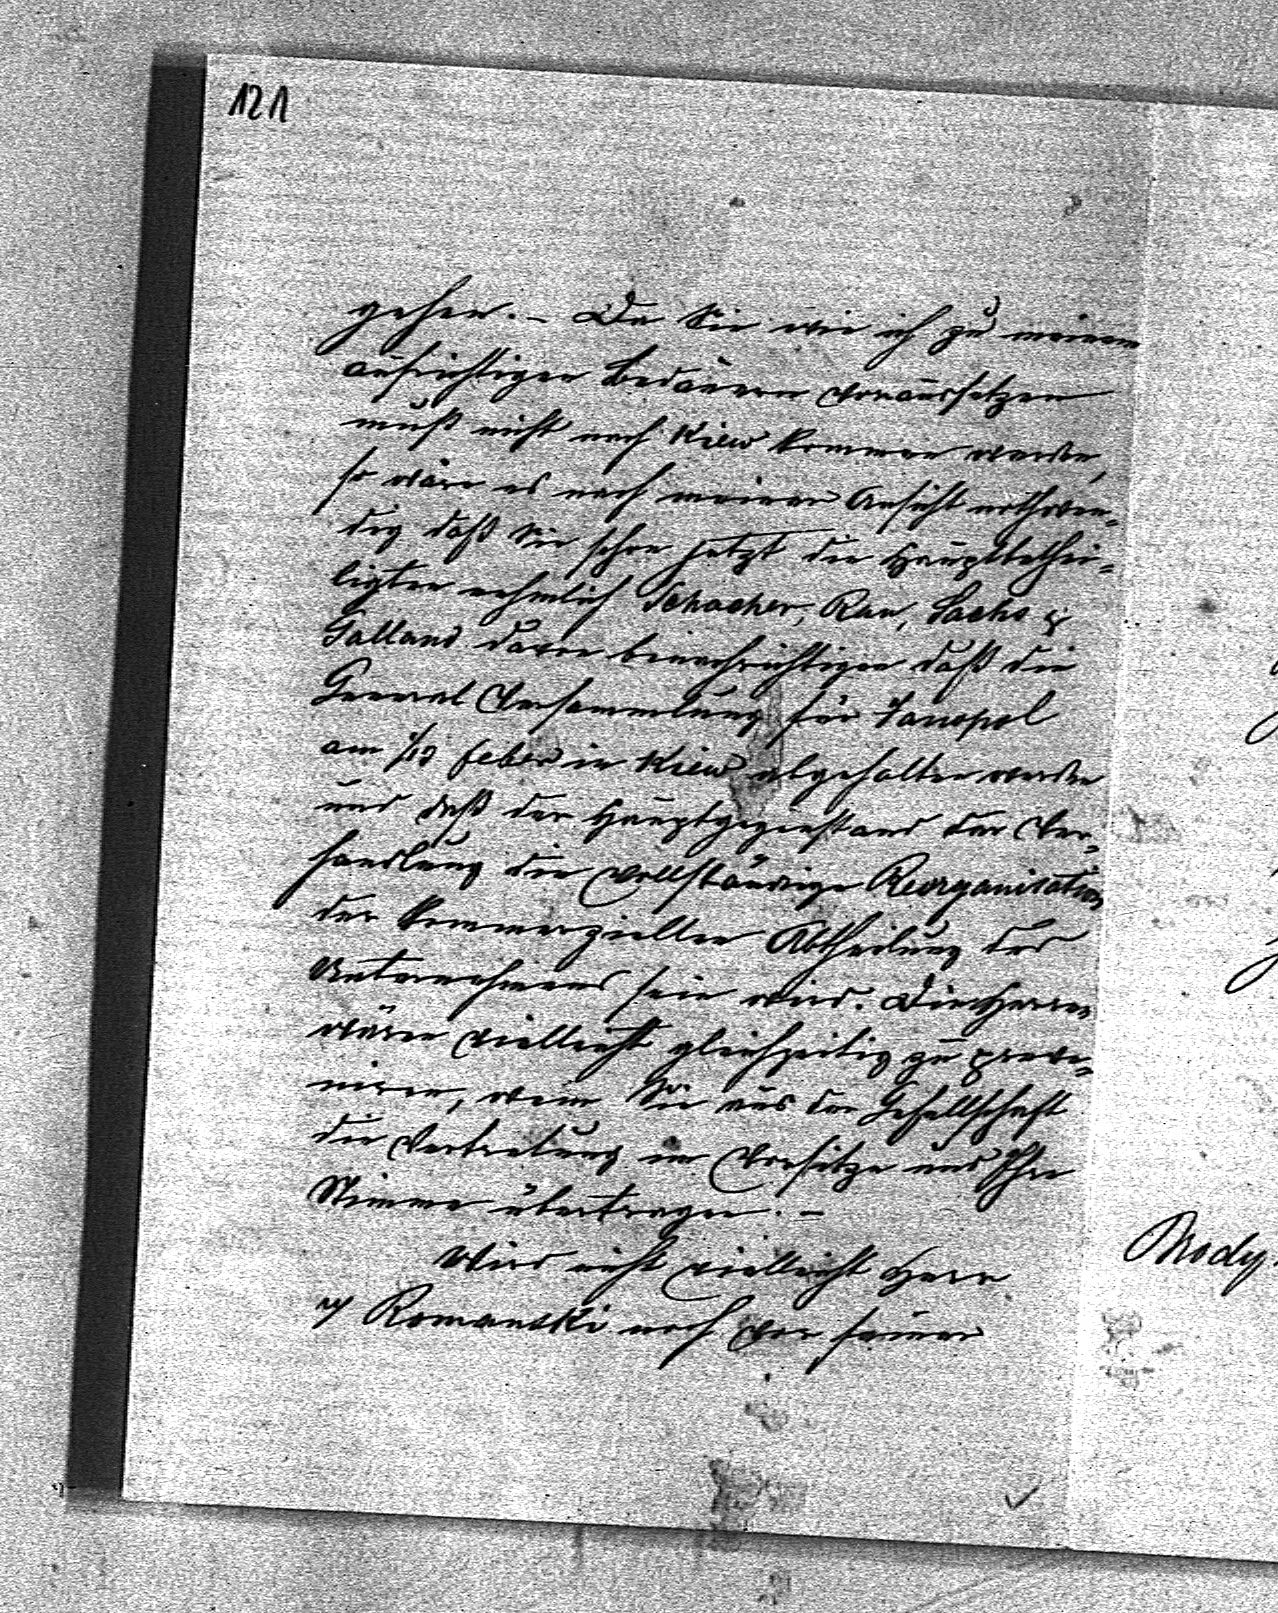 121
gehen. – Da Sie wie ich zu meinem
aufrichtigen Bedauern voraussetzen
muß nicht nach Kiew kommen werden,
so wäre es nach meiner Ansicht nothwen-
dig daß Sie schon jetzt die Hauptbethei-
ligten nehmlich Schacher, Rau, Sachs &
Galland davon benachrichtigen daß die
General Versammlung für Janopol
am 1/13 Feber in Kiew abgehalten werden
und daß der Hauptgegenstand der Ver-
handlung die vollständige Reorganisation
der kommerziellen Abtheilung des
Unternehmens sein wird. Die Herren
wären vielleicht gleichzeitig zu preve-
niren, wem Sie aus der Gesellschaft
die Vertretung im Vorsitze und Ihre
Stimme übertragen. –
Wird nicht vielleicht Herr
v Romanski noch vor seiner
Brody